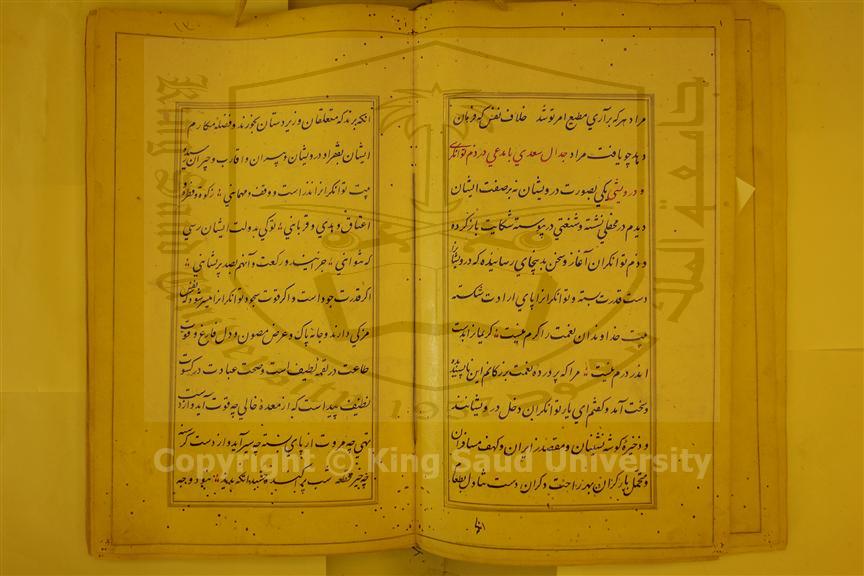 مراد هر که برآری مطیع امر تو شد خلاف نفس که فرمان
دهد چو یافت مراد جدال سعدی با مدعی در ذم توانگری
و درویشی یکی بصورت درویشان نه بر صفت ایشان
دیدم در محفلی نشسته و شنعتی در پیوسته شکایت باز کرده
و ذم توانگران آغاز و سخن بدینجای رسانیده که درویشانرا
دست قدرت بسته و توانگرانرا پای ارادت شکسته
بیت خداوندان نعمت را کرم نیست کریمانرا بدست
اندر درم نیست مرا که پرورده نعمت بزرگانم این ناپسندیده
و سخت آمد و گفتم ای یار توانگران دخل درویشانند
و ذخیره گوشه نشینان و مقصد زایران و کهف مسافران
و متحمل بار گران بهر راحت دگران دست تناول بطعام
انگه برند که متعلقان و زیردستان بخورند و فضله مکارم
ایشان بفقرا و درویشان و پیران و اقارب و جیران رسیده
بیت توانگرانرا نذر است و وقف و مهمانی زکوة و فطره و
اعتاق و هدی و قربانی تو کی بدولت ایشان رسی
که نتوانی جز این دو رکعت و آنهم بصد پریشانی
اگر قدرت جود است و اگر قوت سجود توانگرانرا میسر شود که
مزکی دارند و جامه پاک و عرض مصون و دل فارغ و قوت
طاعت در لقمه لطیف است و صحت عبادت در کسوت
نظیف پیداست که از معده خالی چه قوت آید و از دست
تهی چه مروت از پای بسته چه سیر آید و از دست گرسنه
چه خیر قطعه شب پراکنده خسبد انکه پدید نبود وجه
Copyright © King Saud University
King Saud University
جامعة الملك
1957